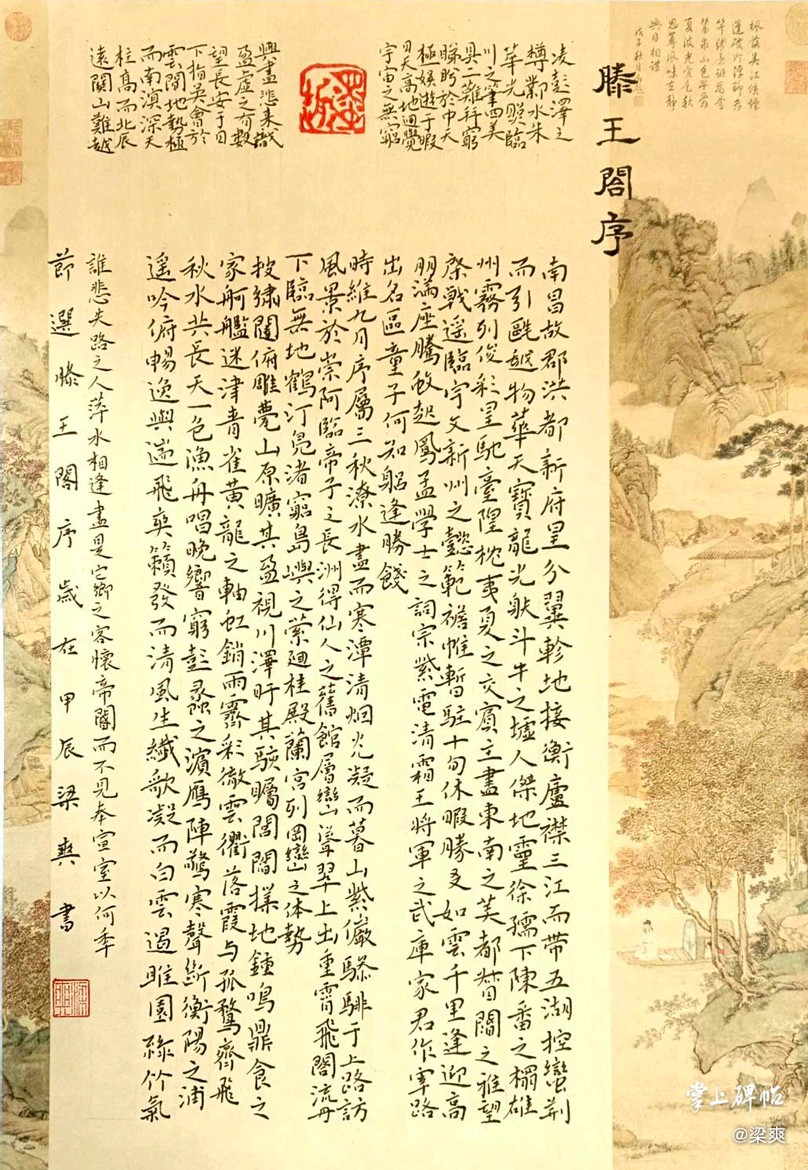 滕王閣序
南昌故郡洪都新府星分翼軫地接衡廬襟三江而帶五湖控蠻荊
而引甌越物華天寶龍光射斗牛之墟人傑地靈徐孺下陳蕃之榻雄
州霧列俊彩星馳臺隍枕夷夏之交賓主盡東南之美都督閻之雅望
棨戟遙臨宇文新州之懿範襜帷暫駐十旬休暇勝友如雲千里逢迎高
朋滿座騰蛟起鳳孟學士之詞宗紫電清霜王將軍之武庫家君作宰路
出名區童子何知躬逢勝餞
時維九月序屬三秋潦水盡而寒潭清烟光凝而暮山紫儼驂騑于上路訪
風景於崇阿臨帝子之長洲得仙人之舊館層巒聳翠上出重霄飛閣流丹
下臨無地鶴汀鳧渚窮島嶼之縈迴桂殿蘭宮列岡巒之体勢
披繡闥俯雕甍山原曠其盈視川澤盱其駭矚閭閻撲地鐘鳴鼎食之
家舸艦迷津青雀黃龍之軸虹銷雨霽彩徹雲衢落霞与孤鶩齊飛
秋水共長天一色漁舟唱晚響窮彭蠡之濱雁陣驚寒聲斷衡陽之浦
遙吟俯暢逸興遄飛爽籟發而清風生纖歌凝而白雲遏睢園綠竹氣
凌彭澤之
樽鄴水朱
華光照臨
川之筆四美
具二難并窮
睇眄於中天
極娛遊于暇
日天高地迥覺
宇宙之無窮
興盡悲來識
盈虛之有數
望長安于日
下指吳會於
雲間地勢極
而南溟深天
柱高而北辰
遠關山難越
誰悲失路之人萍水相逢盡是它鄉之客懷帝閽而不見奉宣室以何年
節選滕王閣序歲在甲辰梁爽書
掌上碑帖
@梁爽